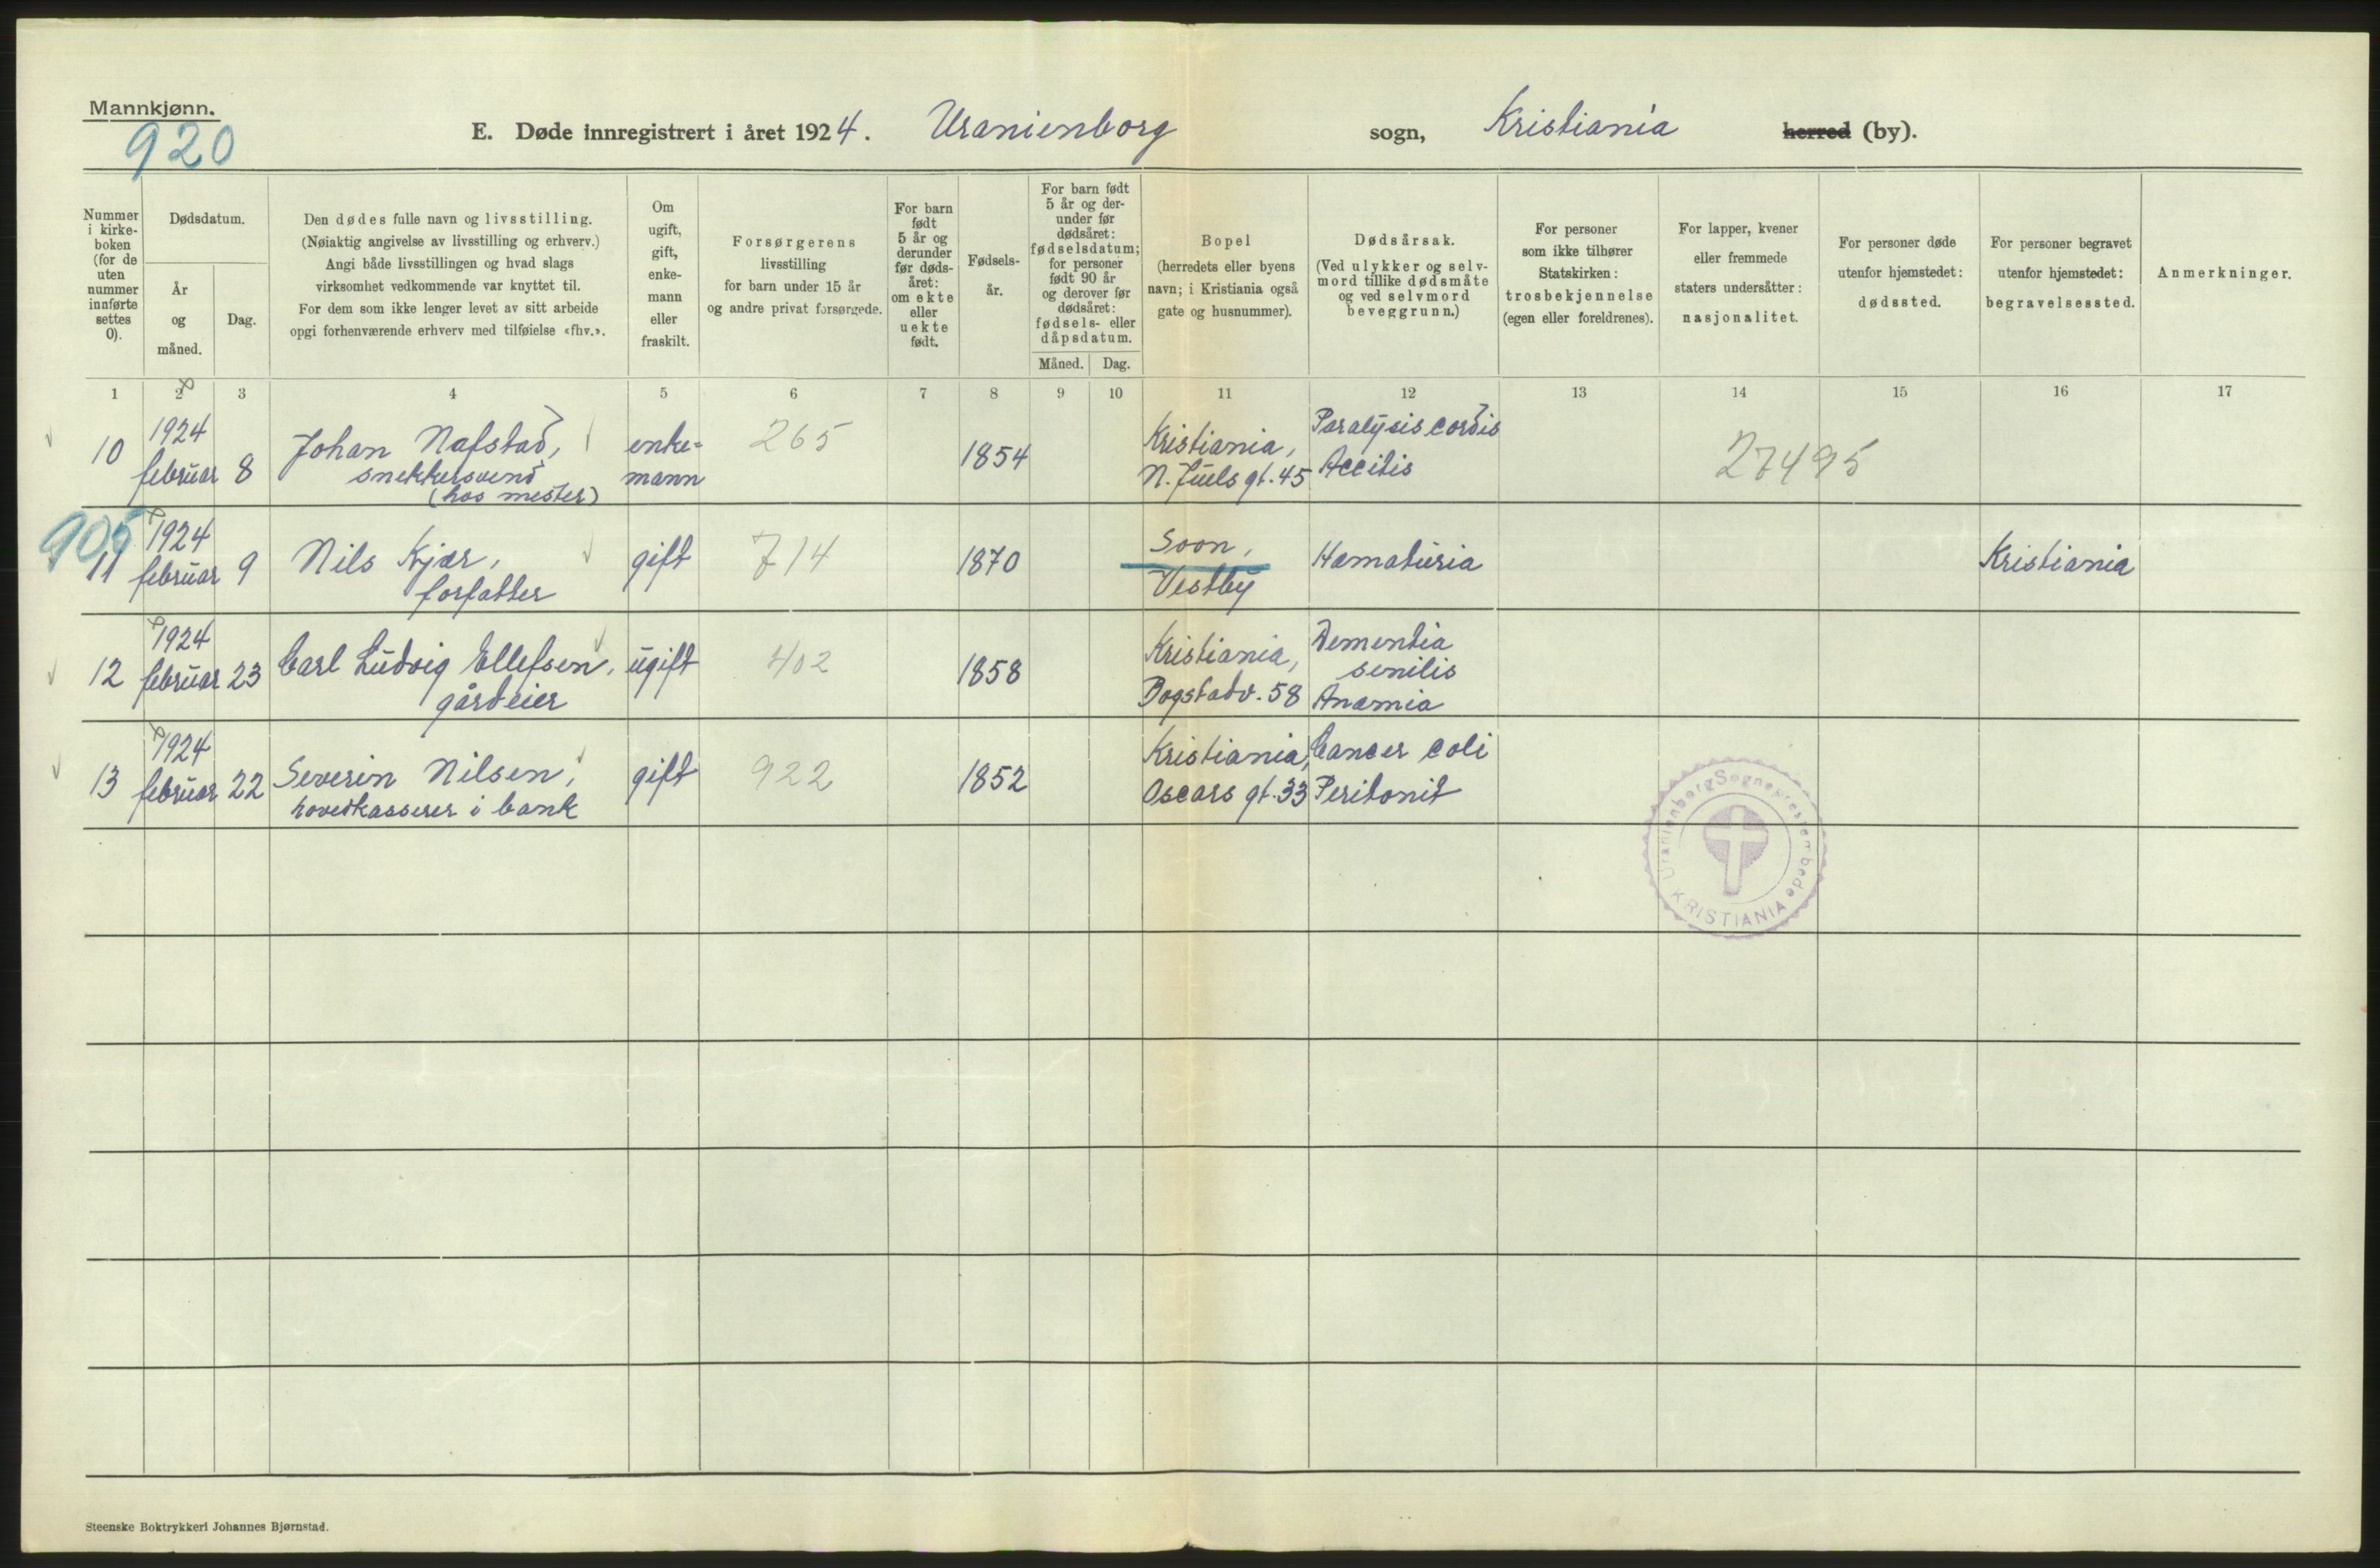 Mannkjønn.
920
E. Døde innregistrert i året 1924. Uranienborg sogn, Kristiania herred (by).
Nummer i kirke- boken (for de uten nummer innførte settes 0).
Dødsdatum.
År og måned.
Dag.
Den dødes fulle navn og livsstilling.
(Nøiaktig angivelse av livsstilling og erhverv.)
Angi både livsstillingen og hvad slags
virksomhet vedkommende var knyttet til.
For dem som ikke lenger levet av sitt arbeide
opgi forhenværende erhverv med tilføielse «fhv.».
Om ugift, gift, enke- mann eller fraskilt.
Forsørgerens
livsstilling
for barn under 15 år
og andre privat forsørgede.
For barn født 5 år og derunder før døds- året: om ekte eller uekte født.
Fødsels- år.
For barn født 5 år og der- under før dødsåret: fødselsdatum; for personer født 90 år og derover før dødsåret: fødsels- eller dåpsdatum.
Måned. Dag.
Bopel
(herredets eller byens
navn; i Kristiania også
gate og husnummer).
Dødsårsak.
(Ved ulykker og selv-
mord tillike dødsmåte
og ved selvmord
beveggrunn.)
For personer
som ikke tilhører
Statskirken:
trosbekjennelse
(egen eller foreldrenes).
For lapper, kvener
eller fremmede
staters undersåtter:
nasjonalitet.
For personer døde
utenfor hjemstedet:
dødssted.
For personer begravet
utenfor hjemstedet:
begravelsessted.
Anmerkninger.
1 2 3 4 5 6 7 8 9 10 11 12 13 14 15 16 17
10 1924 februar 8 Johan Nafstad, snekkersvend (hos mester) enke=mann 265 1854 Kristiania, N. Juels gt. 45 Paralysis cordis Accitis 27495
905
11 1924 februar 9 Nils Kjær, forfatter gift 714 1870 Soon, Vestby Hæmaturia Kristiania
12 1924 februar 23 Carl Ludvig Ellefsen, gårdeier ugift 402 1858 Kristiania, Bogstadv. 58 Dementia senilis Anæmia
13 1924 februar 22 Severin Nilsen, hovedkasserer i bank gift 922 1852 Kristiania, Oscars gt. 33 Cancer coli Peritonit
Uranienborg Sogneprestembede KRISTIANIA
Steenske Boktrykkeri Johannes Bjørnstad.